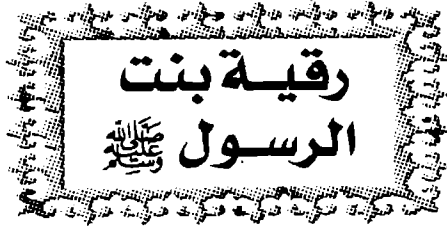 رقيـة بنت
الرسـول ﷺ